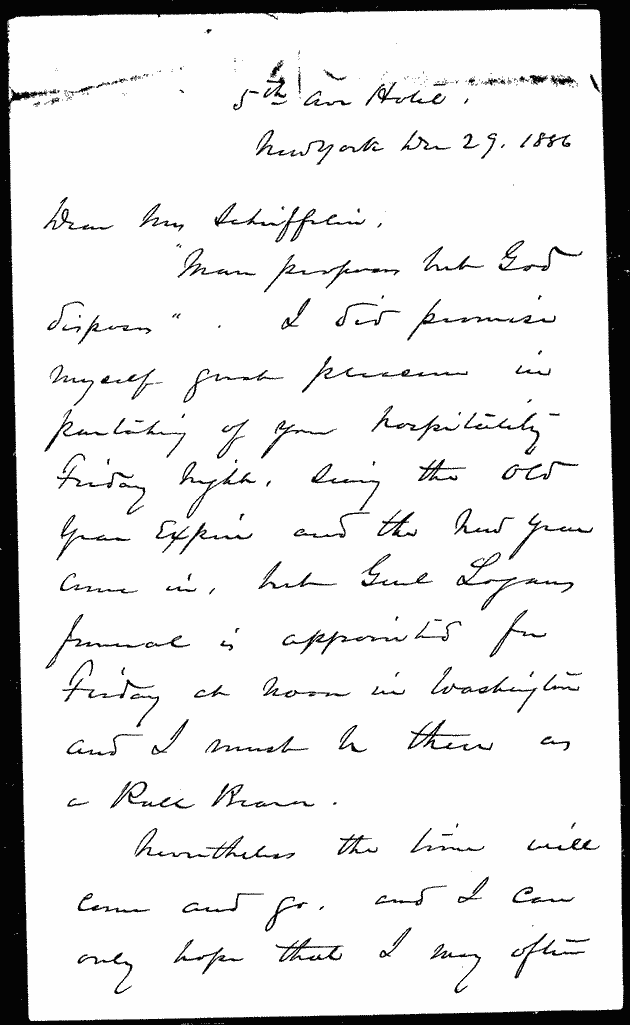 5th Ave Hotel.
New York Dec 29. 1886
Dear Mrs Schieffelin,
"Man proposes but God
disposes". I did promise
myself great pleasure in
partaking of your hospitality
Friday night, seeing the Old
Year Expire and the New Year
come in, but Genl Logans
funeral is appointed for
Friday at noon in Washington
and I must be there as
a Pall Bearer.
Nevertheless the time will
come and go. and I can
only hope that I may often